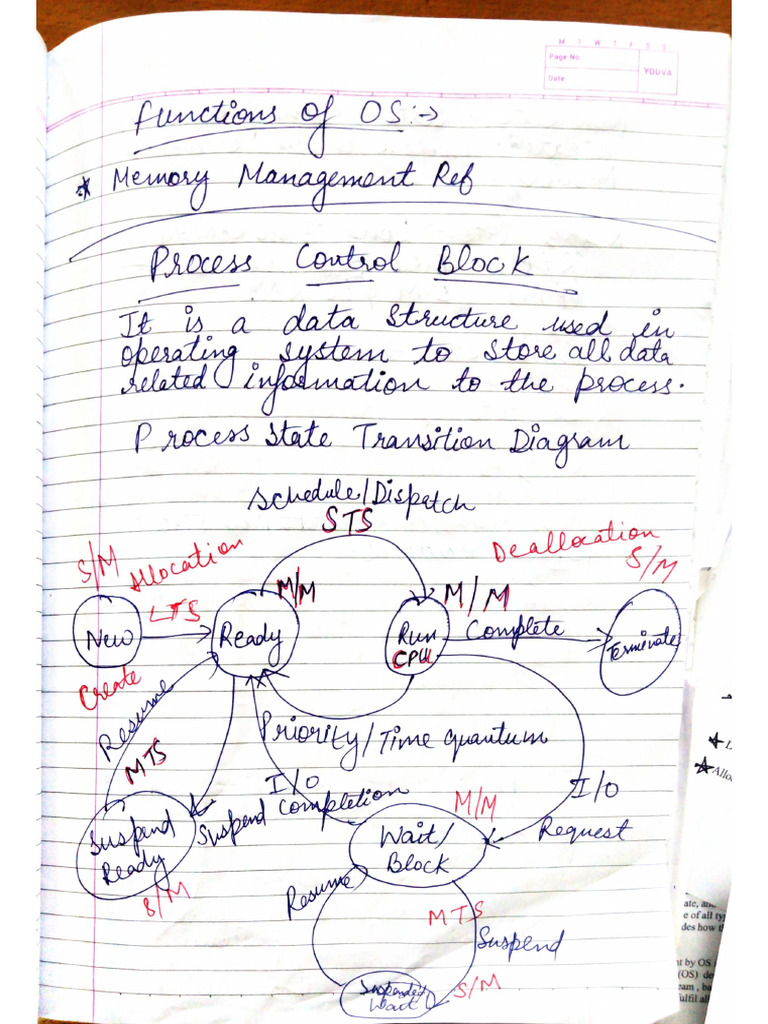 M T W T F S S
Page No.
Date
YOUVA
Functions of OS:→
* Memory Management Ref
Process Control Block
It is a data structure used in
operating system to store all data
related information to the process.
Process State Transition Diagram
Schedule/Dispatch
STS
Deallocation
S/M
S/M
Allocation
M/M
M/M
LTS
New
Ready
Run
CPU
Complete
Terminate
Create
Resume
MTS
Priority/Time quantum
I/O
Completion
Suspend
Suspend
Ready
S/M
M/M
Wait/
Block
I/O
Request
Resume
MTS
Suspend
S/M
Suspended
Wait
Allo
ate, an
e of all ty
des how t
nt by OS
(OS) de
eam , ba
ulfil all